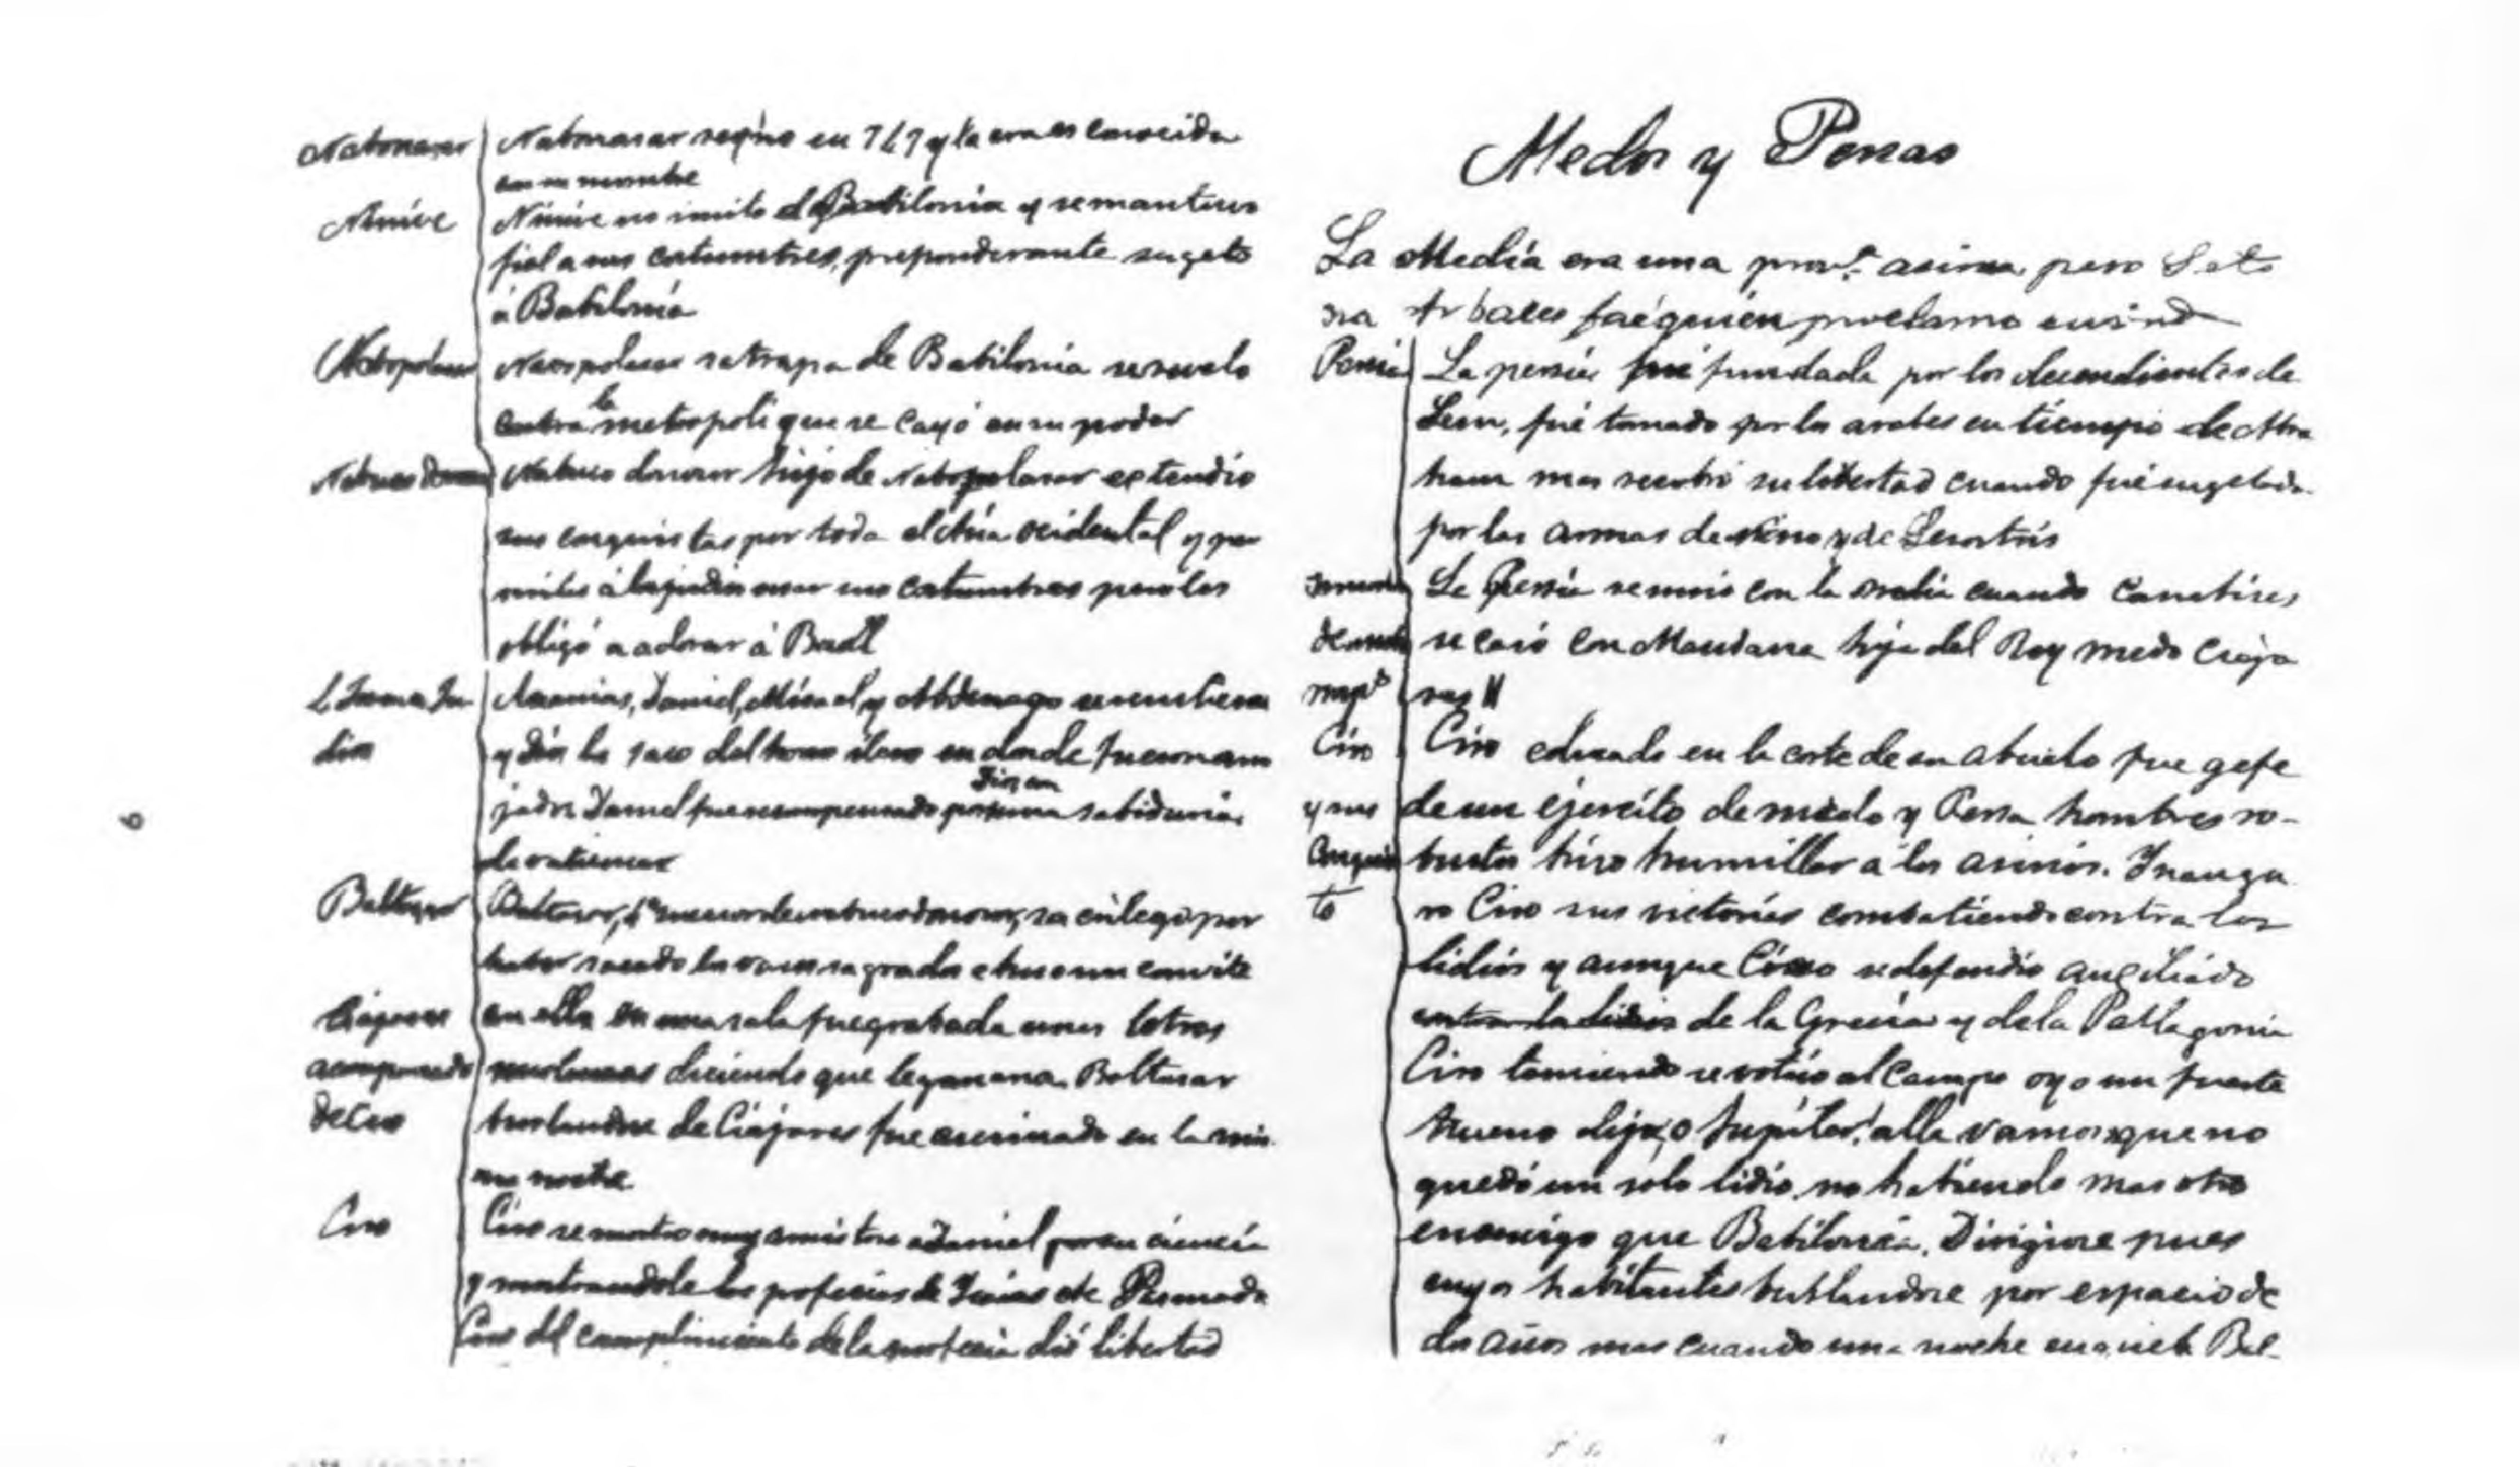 Nabonasar | Nabonasar reino en 747 y la era es conocida
en su nombre
Ninive | Ninive no imito á Babilonia y se mantuvo
fiel a sus costumbres, preponderante sugeto
a Babilonia
Nabopolasar | Nabopolasar satrapa de Babilonia se revelo
contra la metropoli que se cayó en su poder
Nabuco donosor hijo de Nabopolasar extendio
sus conquistas por toda el Asia ocidental y
á los judios usar sus costumbres pero los
obligó a adorar á Baal
Ananias, Daniel, Misael y Abdenago
y Dios los saco del horno ileso en donde fueron arro
jados Daniel fue recompensado por su sabiduria
de vaticinar
Baltasar | Baltasar,
haber sacado los vasos sagrados e hizo un convite
Ciajares | en ella en una sala fue grabada unas letras
acompañado | diciendo que le ganaria. Baltasar
de Ciro | burlandose de Ciajares fue asesinado en la mis
ma noche
Ciro | Ciro se mostro muy amistoso a Daniel por su ciencia
y mostrandole las profecias de Isaias etc Persuadido
Ciro del cumplimiento de la profecia dió libertad
6
Medos y Persas
La Media era una prov.ª asiria, pero
Arbaces fué quien proclamo su ind
Persia | La persia fué fundada por los decendientes de
Sem, fué tomado por los arabes en tiempo de Abra
ham mas recobró su libertad cuando fué sugetada
por las armas de Nino y de Sesostris
La Persia se unió con la media cuando Cambises
se casó con Mandana hija del Rey medo Ciaja
res II
Ciro | Ciro educado en la corte de su abuelo fue gefe
y sus | de un ejercito de medo y Persa hombres ro-
conquis | bustos hizo humillar a los asirios. Inaugu
ta | ro Ciro sus victorias combatiendo contra los
lidios y aunque Creso se defendio auxiliado
contra los lidios de la Grecia y de la Paflagonia
Ciro temiendo se volvio al campo oyo un fuerte
trueno dijo, o Jupiter! alla vamos que no
quedó un solo lidio no habiendo mas otro
enemigo que Babilonia. Dirigiose pues
cuyos habitantes burlandose por espacio de
dos años mas cuando una noche en que Bal-